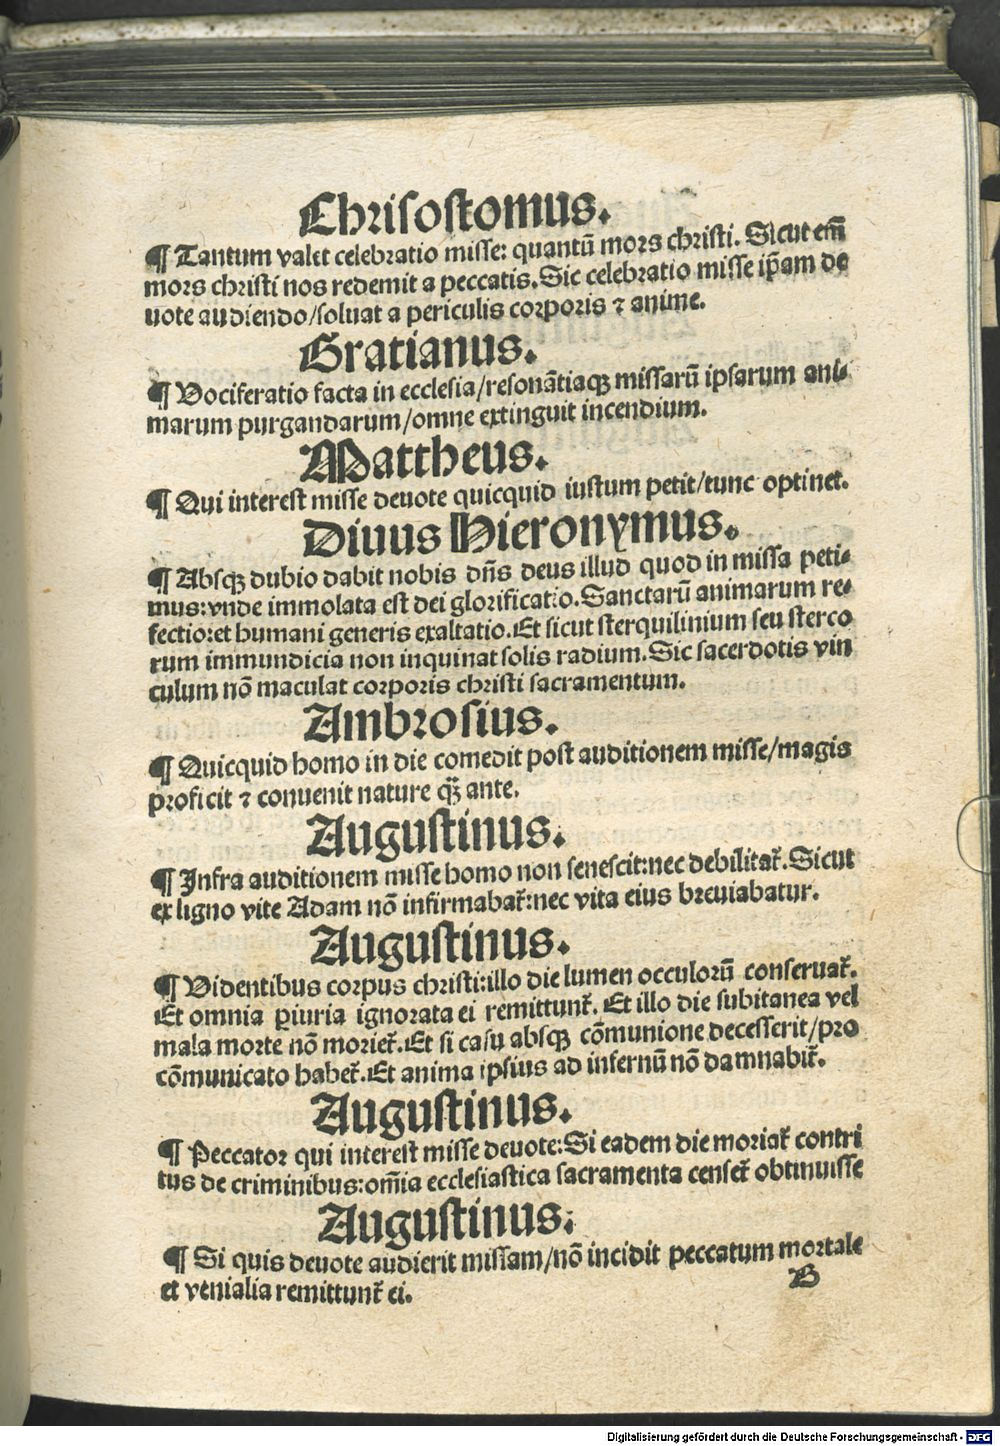 Chrisostomus.
¶ Tantum valet celebratio misse: quantū mors christi. Sicut em̄
mors christi nos redemit a peccatis. Sic celebratio misse ip̄am de
uote audiendo/soluat a periculis corporis ⁊ anime.
Gratianus.
¶ Vociferatio facta in ecclesia/resonātiaqꝫ missarū ipsarum ani⸗
marum purgandarum/omne extinguit incendium.
Mattheus.
¶ Qui interest misse deuote quicquid iustum petit/tunc optinet.
Diuus Hieronymus.
¶ Absqꝫ dubio dabit nobis dn̄s deus illud quod in missa peti⸗
mus: vnde immolata est dei glorificatio. Sanctarū animarum re⸗
fectio: et humani generis exaltatio. Et sicut sterquilinium seu sterco
rum immundicia non inquinat solis radium. Sic sacerdotis vin
culum nō maculat corporis christi sacramentum.
Ambrosius.
¶ Quicquid homo in die comedit post auditionem misse/magis
proficit ⁊ conuenit nature qꝫ̄ ante.
Augustinus.
¶ Infra auditionem misse homo non senescit: nec debilitat᷑. Sicut
ex ligno vite Adam nō infirmabat᷑: nec vita eius breuiabatur.
Augustinus.
¶ Videntibus corpus christi: illo die lumen occulorū conseruat᷑.
Et omnia ꝑiuria ignorata ei remittunt᷑. Et illo die subitanea vel
mala morte nō moriet᷑. Et si casu absqꝫ cōmunione decesserit/pro
cōmunicato habet᷑. Et anima ipsius ad infernū nō damnabit᷑.
Augustinus.
¶ Peccator qui interest misse deuote: Si eadem die moriat᷑ contri
tus de criminibus: om̄ia ecclesiastica sacramenta censet᷑ obtinuisse
Augustinus.
¶ Si quis deuote audierit missam/nō incidit peccatum mortale
et venialia remittunt᷑ ei.
B
Digitalisierung gefördert durch die Deutsche Forschungsgemeinschaft - DFG